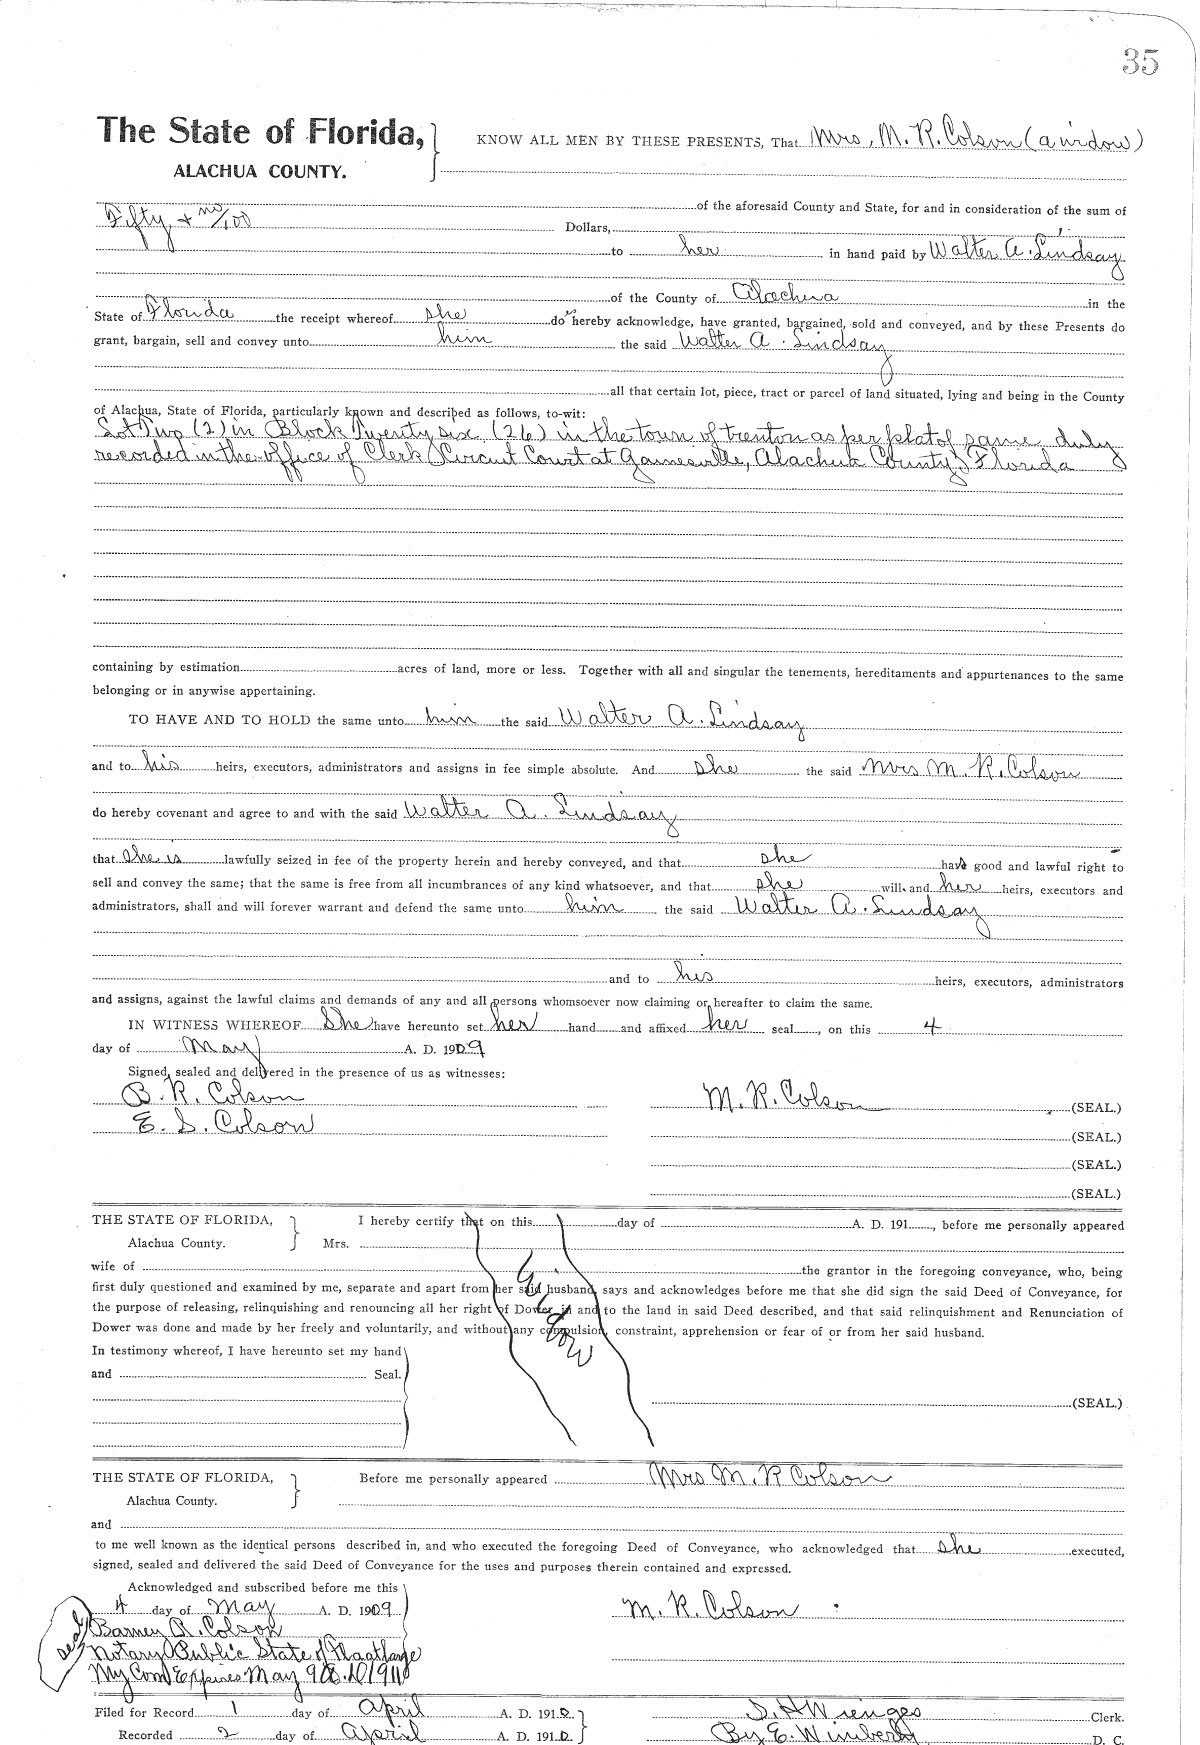 35
The State of Florida, KNOW ALL MEN BY THESE PRESENTS, That Mrs, M. R. Colson (a widow)
ALACHUA COUNTY.
of the aforesaid County and State, for and in consideration of the sum of
Fifty + no/100 Dollars,
to her in hand paid by Walter A. Lindsay
of the County of Alachua in the
State of Florida the receipt whereof she do hereby acknowledge, have granted, bargained, sold and conveyed, and by these Presents do
grant, bargain, sell and convey unto him the said Walter A. Lindsay
all that certain lot, piece, tract or parcel of land situated, lying and being in the County
of Alachua, State of Florida, particularly known and described as follows, to-wit:
Lot Two (2) in Block Twenty six (26) in the town of trenton as per plat of same duly
recorded in the office of Clerk Circuit Court at Gainesville, Alachua County, Florida
containing by estimation acres of land, more or less. Together with all and singular the tenements, hereditaments and appurtenances to the same
belonging or in anywise appertaining.
TO HAVE AND TO HOLD the same unto him the said Walter A. Lindsay
and to his heirs, executors, administrators and assigns in fee simple absolute. And she the said Mrs M. R. Colson
do hereby covenant and agree to and with the said Walter A. Lindsay
that she is lawfully seized in fee of the property herein and hereby conveyed, and that she has good and lawful right to
sell and convey the same; that the same is free from all incumbrances of any kind whatsoever, and that she will and her heirs, executors and
administrators, shall and will forever warrant and defend the same unto him the said Walter A. Lindsay
and to his heirs, executors, administrators
and assigns, against the lawful claims and demands of any and all persons whomsoever now claiming or hereafter to claim the same.
IN WITNESS WHEREOF She have hereunto set her hand and affixed her seal, on this 4
day of May A. D. 1909
Signed, sealed and delivered in the presence of us as witnesses:
B. R. Colson M. R. Colson (SEAL.)
E. S. Colson (SEAL.)
(SEAL.)
(SEAL.)
THE STATE OF FLORIDA, I hereby certify that on this day of A. D. 191, before me personally appeared
Alachua County. Mrs.
wife of the grantor in the foregoing conveyance, who, being
first duly questioned and examined by me, separate and apart from her said husband, says and acknowledges before me that she did sign the said Deed of Conveyance, for
the purpose of releasing, relinquishing and renouncing all her right of Dower in and to the land in said Deed described, and that said relinquishment and Renunciation of
Dower was done and made by her freely and voluntarily, and without any compulsion, constraint, apprehension or fear of or from her said husband.
widow
In testimony whereof, I have hereunto set my hand
and Seal.
(SEAL.)
THE STATE OF FLORIDA, Before me personally appeared Mrs M. R Colson
Alachua County.
and
to me well known as the identical persons described in, and who executed the foregoing Deed of Conveyance, who acknowledged that she executed,
signed, sealed and delivered the said Deed of Conveyance for the uses and purposes therein contained and expressed.
Acknowledged and subscribed before me this
4 day of May A. D. 1909 M. R. Colson
seal Barney R. Colson
Notary Public State of Fla at large
My Com Expires May 9 A. D 1911
Filed for Record 1 day of April A. D. 1910 S. H Wienges Clerk.
Recorded 2 day of April A. D. 1910 By E. Wimberly D. C.